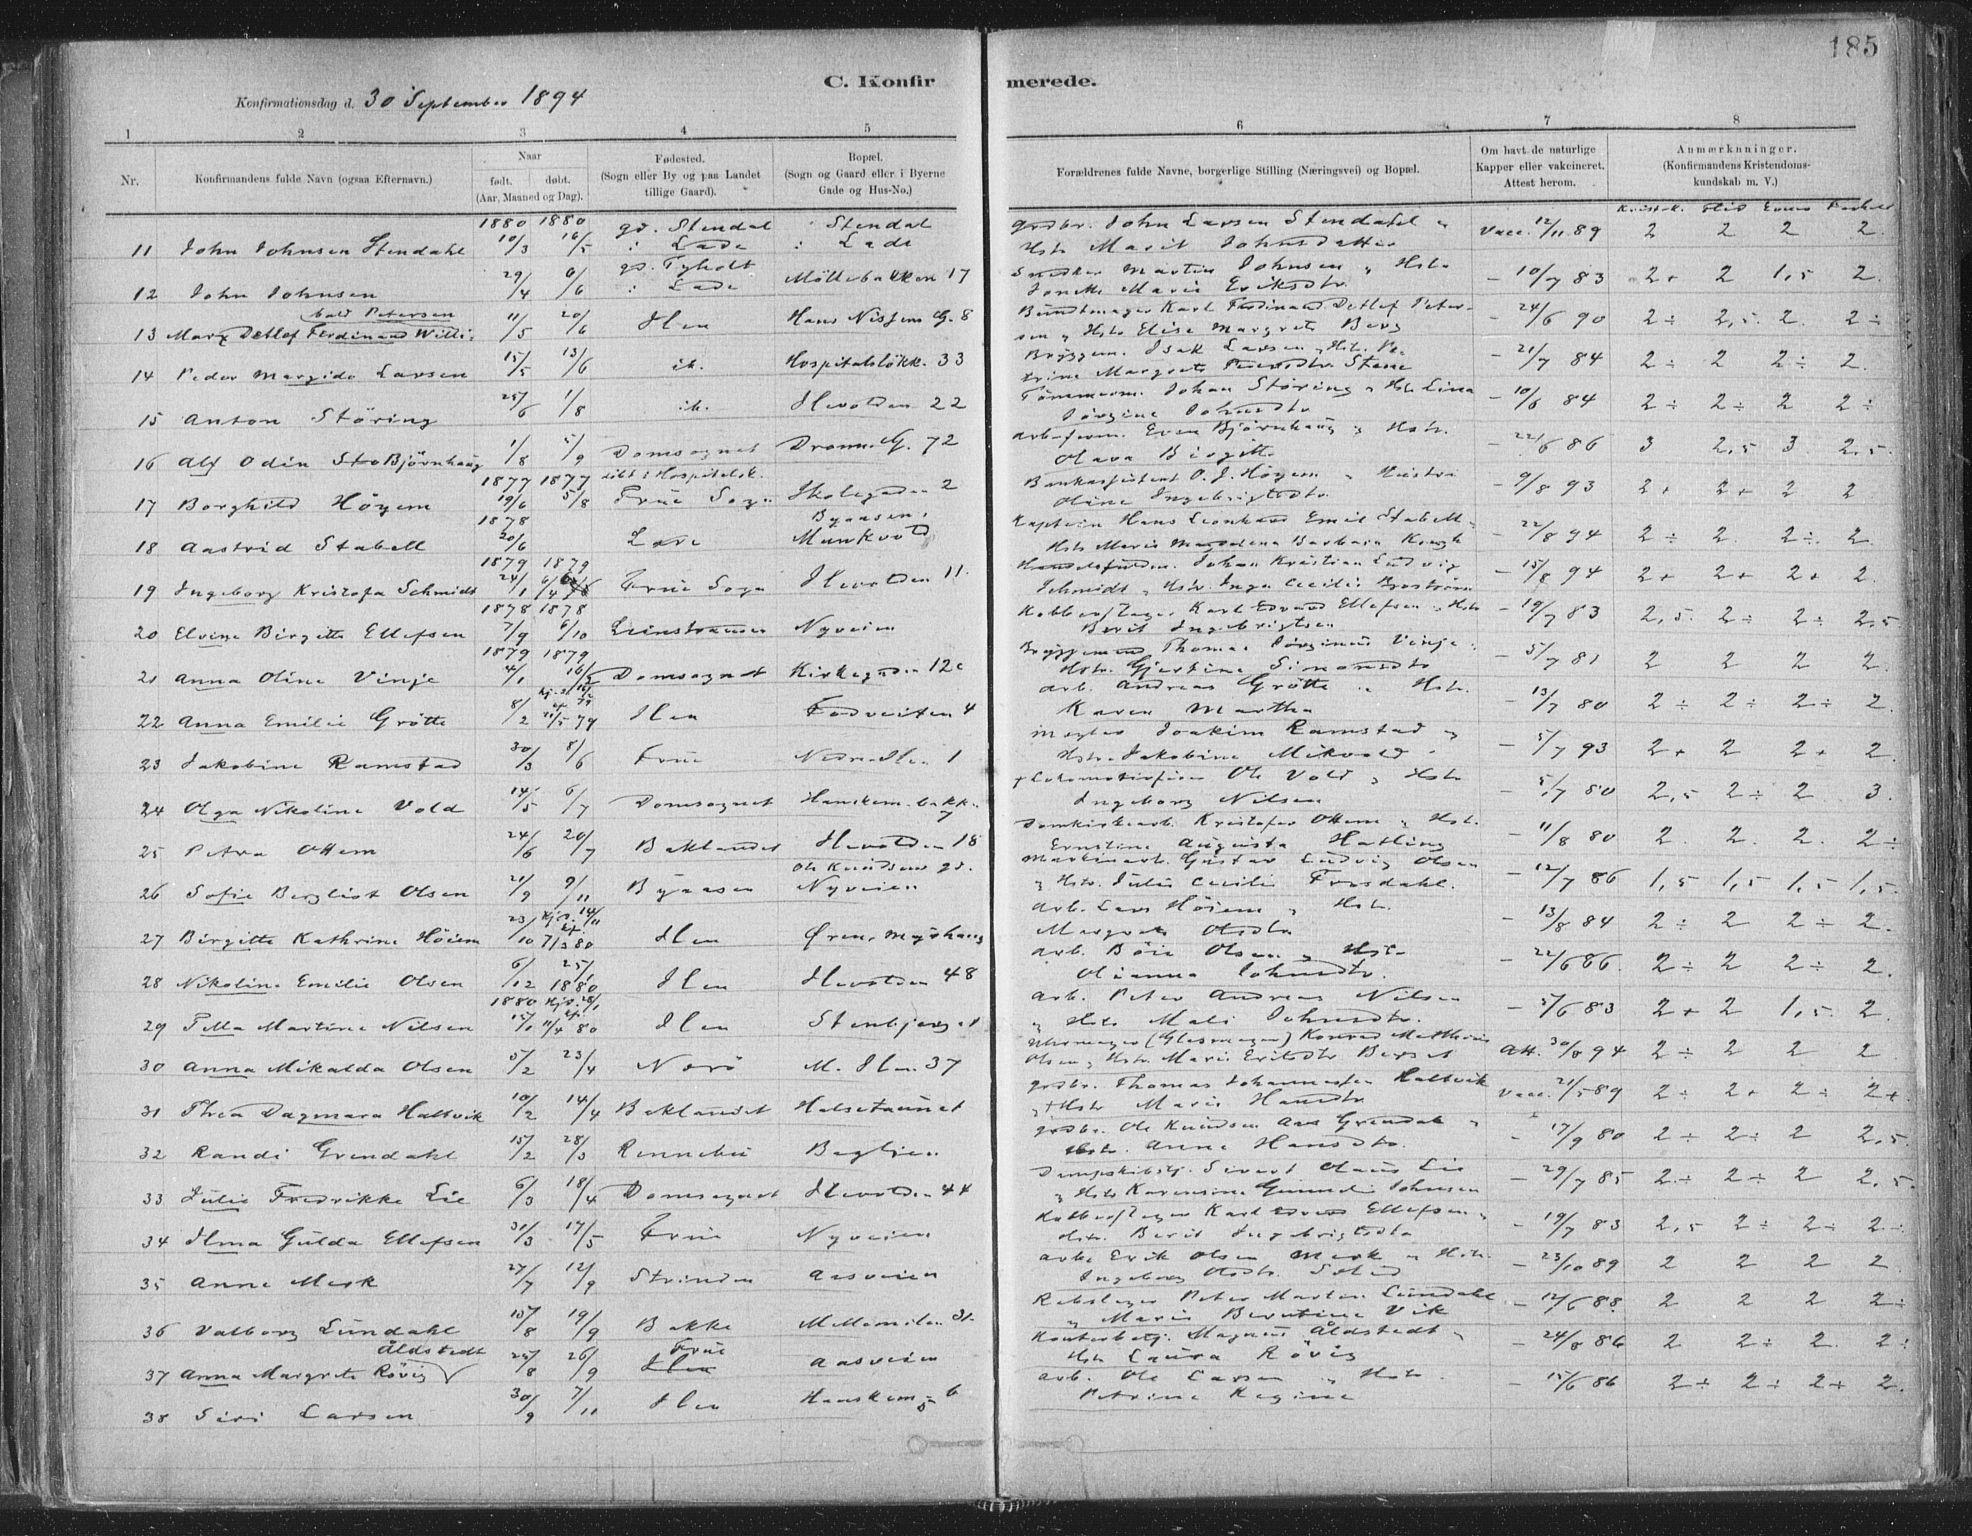 185
C. Konfirmerede.
Konfirmationsdag d. 30 September 1894
1 2 3 4 5 6 7 8
Nr. Konfirmandens fulde Navn (ogsaa Efternavn.) Naar født. døbt. (Aar, Maaned og Dag). Fødested. (Sogn eller By og paa Landet tillige Gaard). Bopæl. (Sogn og Gaard eller i Byerne Gade og Hus-No.) Forældrenes fulde Navne, borgerlige Stilling (Næringsvei) og Bopæl. Om havt de naturlige Kapper eller vakcineret. Attest herom. Anmærkninger. (Konfirmandens Kristendomskundskab m. V.)
1880 1880
11 John Johnsen Stendahl 10/3 16/5 gd. Stendal i Lade Stendal i Lade grdbr. John Larsen Stendahl Hstr Marit Johnsdatter Vacc. 12/11 89 2 2 2 2
12 John Johnsen 29/4 6/6 gd. Tyholt i Lade Möllebakken 17 Snedker Martin Johnsen Hstr Jonette Marie Eriksdtr - 10/7 83 2+ 2 1,5 2
13 Marx Detlef Ferdinand Willibald Petersen 11/5 20/6 Ilen Hans Nissens G. 8 Bundtmager Karl Ferdinand Detlef Petersen Hstr Elise Margrete Berg - 24/6 90 2÷ 2,5 2 2÷
14 Peder Margido Larsen 15/5 13/6 ib. Hospitalsløkk. 33 Bryggem. Isak Larsen Hstr. Petrine Margrete Stene - 21/7 84 2÷ 2 2÷ 2
15 Anton Störing 25/6 1/8 ib. Ilevolden 22 Tömmerm. Johan Störing Hstr Lina Jörgine Johnsdtr - 10/6 84 2÷ 2÷ 2 2÷
16 Alf Odin Bjørnhaug 1/8 5/9 Domsognet Dronn. G. 72 Even Bjørnhaug Hstr. Olava Birgitte - 22/6 86 3 2,5 3 2,5
1877 1877 döbt i Hospitalsk.
17 Borghild Höyem 19/6 5/8 Frue Sogn Skolegaden 2 Bankassistent O. J. Höyem Hustru Oline Ingebrigtsdtr - 9/8 93 2+ 2+ 2 2
1878
18 Aastrid Stabell 20/6 Byaasen, Munkvold Kaptein Hans Leonhard Emil Stabell Hstr Marie Magdalena Barbara Krogh - 22/8 94 2÷ 2 2÷ 2
1879 1879
19 Ingeborg Kristofa Schmidt 24/1 Frue Sogn Ilevolden 11 Johan Kristian Ludvig Schmidt Hstr. Inga Cecilie - 15/8 94 2+ 2+ 2+ 2
1878 1878
20 Elvine Birgitte Ellefsen 7/9 6/10 Leinstranden Nyveien Kobberslager Karl Edvard Ellefsen Hstr Berit Ingebrigtsen - 19/7 83 2,5 2÷ 2÷ 2,5
1879 1879
21 Anna Oline Vinje 4/1 16/2 Domsognet Kirkegaden 12c Bryggemand Thomas Jörginus Vinje Hstr. Gjertine Simonsdtr - 5/7 81 2 2 2 2
22 Anna Emilie Grötte 8/2 Ilen Fodveiten 4 arb. Andreas Grötte Hstr. Karen Martha - 13/7 80 2÷ 2÷ 2÷ 2
23 Jakobine Ramstad 30/3 8/6 Frue Nedre Ilen 1 Joakim Ramstad Hstr. Jakobine Mikvold - 5/7 93 2+ 2 2+ 2
24 Olga Nikoline Vold 14/5 6/7 Domsognet Hanskem. bakk. 7 Ole Vold Hstr Ingeborg Nilsen - 5/7 80 2,5 2÷ 2 3
25 Petra Ottem 24/6 20/7 Baklandet Ilevolden 18 Domkirkearb. Kristofer Ottem Hstr. Ernstine Augusta Hatling - 11/8 80 2 2 2 2÷
26 Sofie Bergliot Olsen 21/9 9/11 Byaasen Ole Knudsens gd. Nyveien Maskinarb. Gustav Ludvig Olsen Hstr. Julie Cecilie Frosdahl - 12/7 86 1,5 1,5 1,5 1,5
27 Birgitte Kathrine Höiem 23/10 7/3 80 Ilen Øren, Myrhaug arb. Lars Höiem Hstr. Margrete Olsdtr - 13/8 84 2÷ 2 2÷ 2
28 Nikoline Emilie Olsen 6/12 25/1 1880 Ilen Ilevolden 48 arb. Böie Olsen Hstr Olianna Johnsdtr. - 22/6 86 2÷ 2 2÷ 2
1880
29 Pella Martine Nilsen 15/1 11/4 80 Ilen Stenbjerget arb. Peter Andreas Nilsen Hstr Mali Johnsdtr. - 5/6 83 2+ 2 1,5 2
30 Anna Mikalda Olsen 5/2 23/4 Nerö M. Ilen 37 Uhrmager (Glasmager) Konrad Matthias Olsen, Hstr. Marie Eriksdtr Berset Att. 30/8 94 2÷ 2 2 2
31 Thea Dagmara Haltvik 10/2 14/4 Baklandet Halsetaunet grdbr. Thomas Johannesen Haltvik Hstr Marie Hansdtr Vacc. 21/5 89 2÷ 2+ 2÷ 2+
32 Randi Grendahl 15/2 28/3 Rennebu Baglien grdbr. Ole Knudsen Aas Grendahl Hstr. Anne Hansdtr. - 17/9 80 2÷ 2÷ 2 2,5
33 Julie Fredrikke Lie 6/3 18/4 Domsognet Ilevolden 44 Dampskibsf. Sivert Olaus Lie Hstr Karensine Gunnelie Johnsen - 29/7 85 2÷ 2÷ 2 2,5
34 Ilma Gulda Ellefsen 31/3 17/5 Frue Nyveien Kobberslager Karl Edvard Ellefsen Hstr. Berit Ingebrigtsdtr - 19/7 83 2,5 2÷ 2÷ 2
35 Anne Merk 27/7 12/9 Strinden Aasveien arb. Erik Olsen Merk Hstr. Ingeborg Olsdtr. - 23/10 89 2 2 2 2
36 Valborg Lundahl 15/8 19/9 Bakke Mellemilen 31. Rebslager Peter Martin Lundahl Marie Berntine Vik - 12/6 88 2 2 2 2÷
37 Anna Margrete Røvig Åldstedt 25/8 26/9 Frue Ilen Aasveien Kontorbetj. Magnus Åldstedt Hstr Laura Røvig - 24/8 86 2 2÷ 2 2÷
38 Siri Larsen 30/9 7/11 Ilen arb. Ole Larsen Hstr. Petrine Regine - 15/6 86 2÷ 2÷ 2+ 2